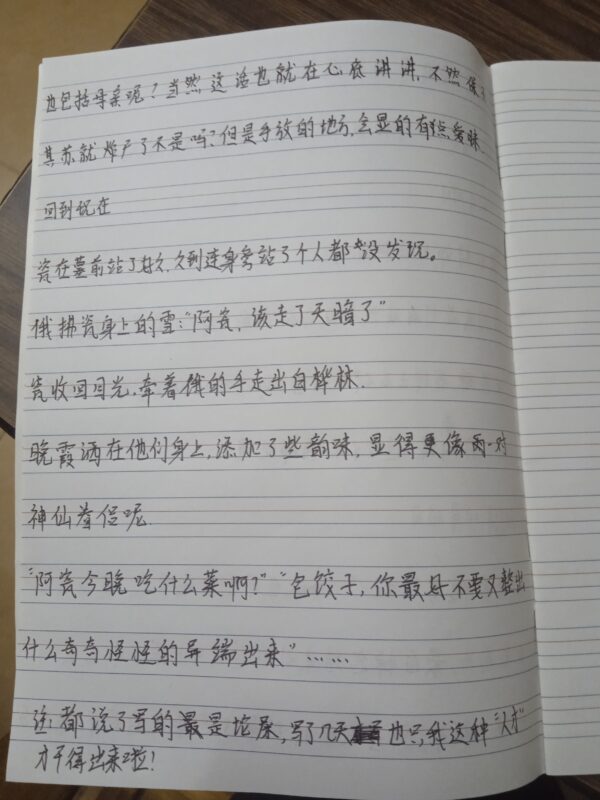 也包括母亲呢?当然这话也就在心底讲讲,不然俄
某苏就炸尸了不是吗?但是手放的地方,会显的有点暧昧.
回到现在
瓷在墓前站了好久,久到连身旁站了个人都没发现。
俄拂瓷身上的雪:“阿瓷,该走了天暗了”
瓷收回目光,牵着俄的手走出白桦林.
晚霞洒在他们身上,添加了些韵味,显得更像一对
神仙眷侣呢.
“阿瓷今晚吃什么菜啊?”“包饺子,你最好不要又整出
什么奇奇怪怪的异端出来”……
注:都说了写的是坨屎,写了几天也只我这种“人才”
才干得出来啦!